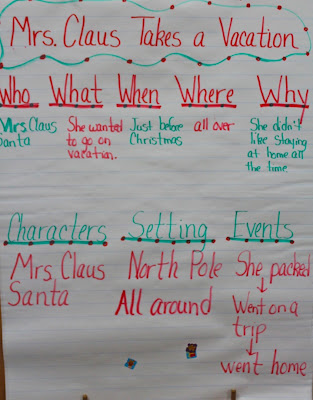 Mrs. Claus Takes a Vacation
Who What When Where Why
Mrs. Claus
Santa
She wanted
to go on
vacation.
Just before
Christmas
all over
She didn't
like staying
at home all
the time
Characters Setting Events
Mrs. Claus
Santa
North Pole
All around
She packed
Went on a
trip
went home